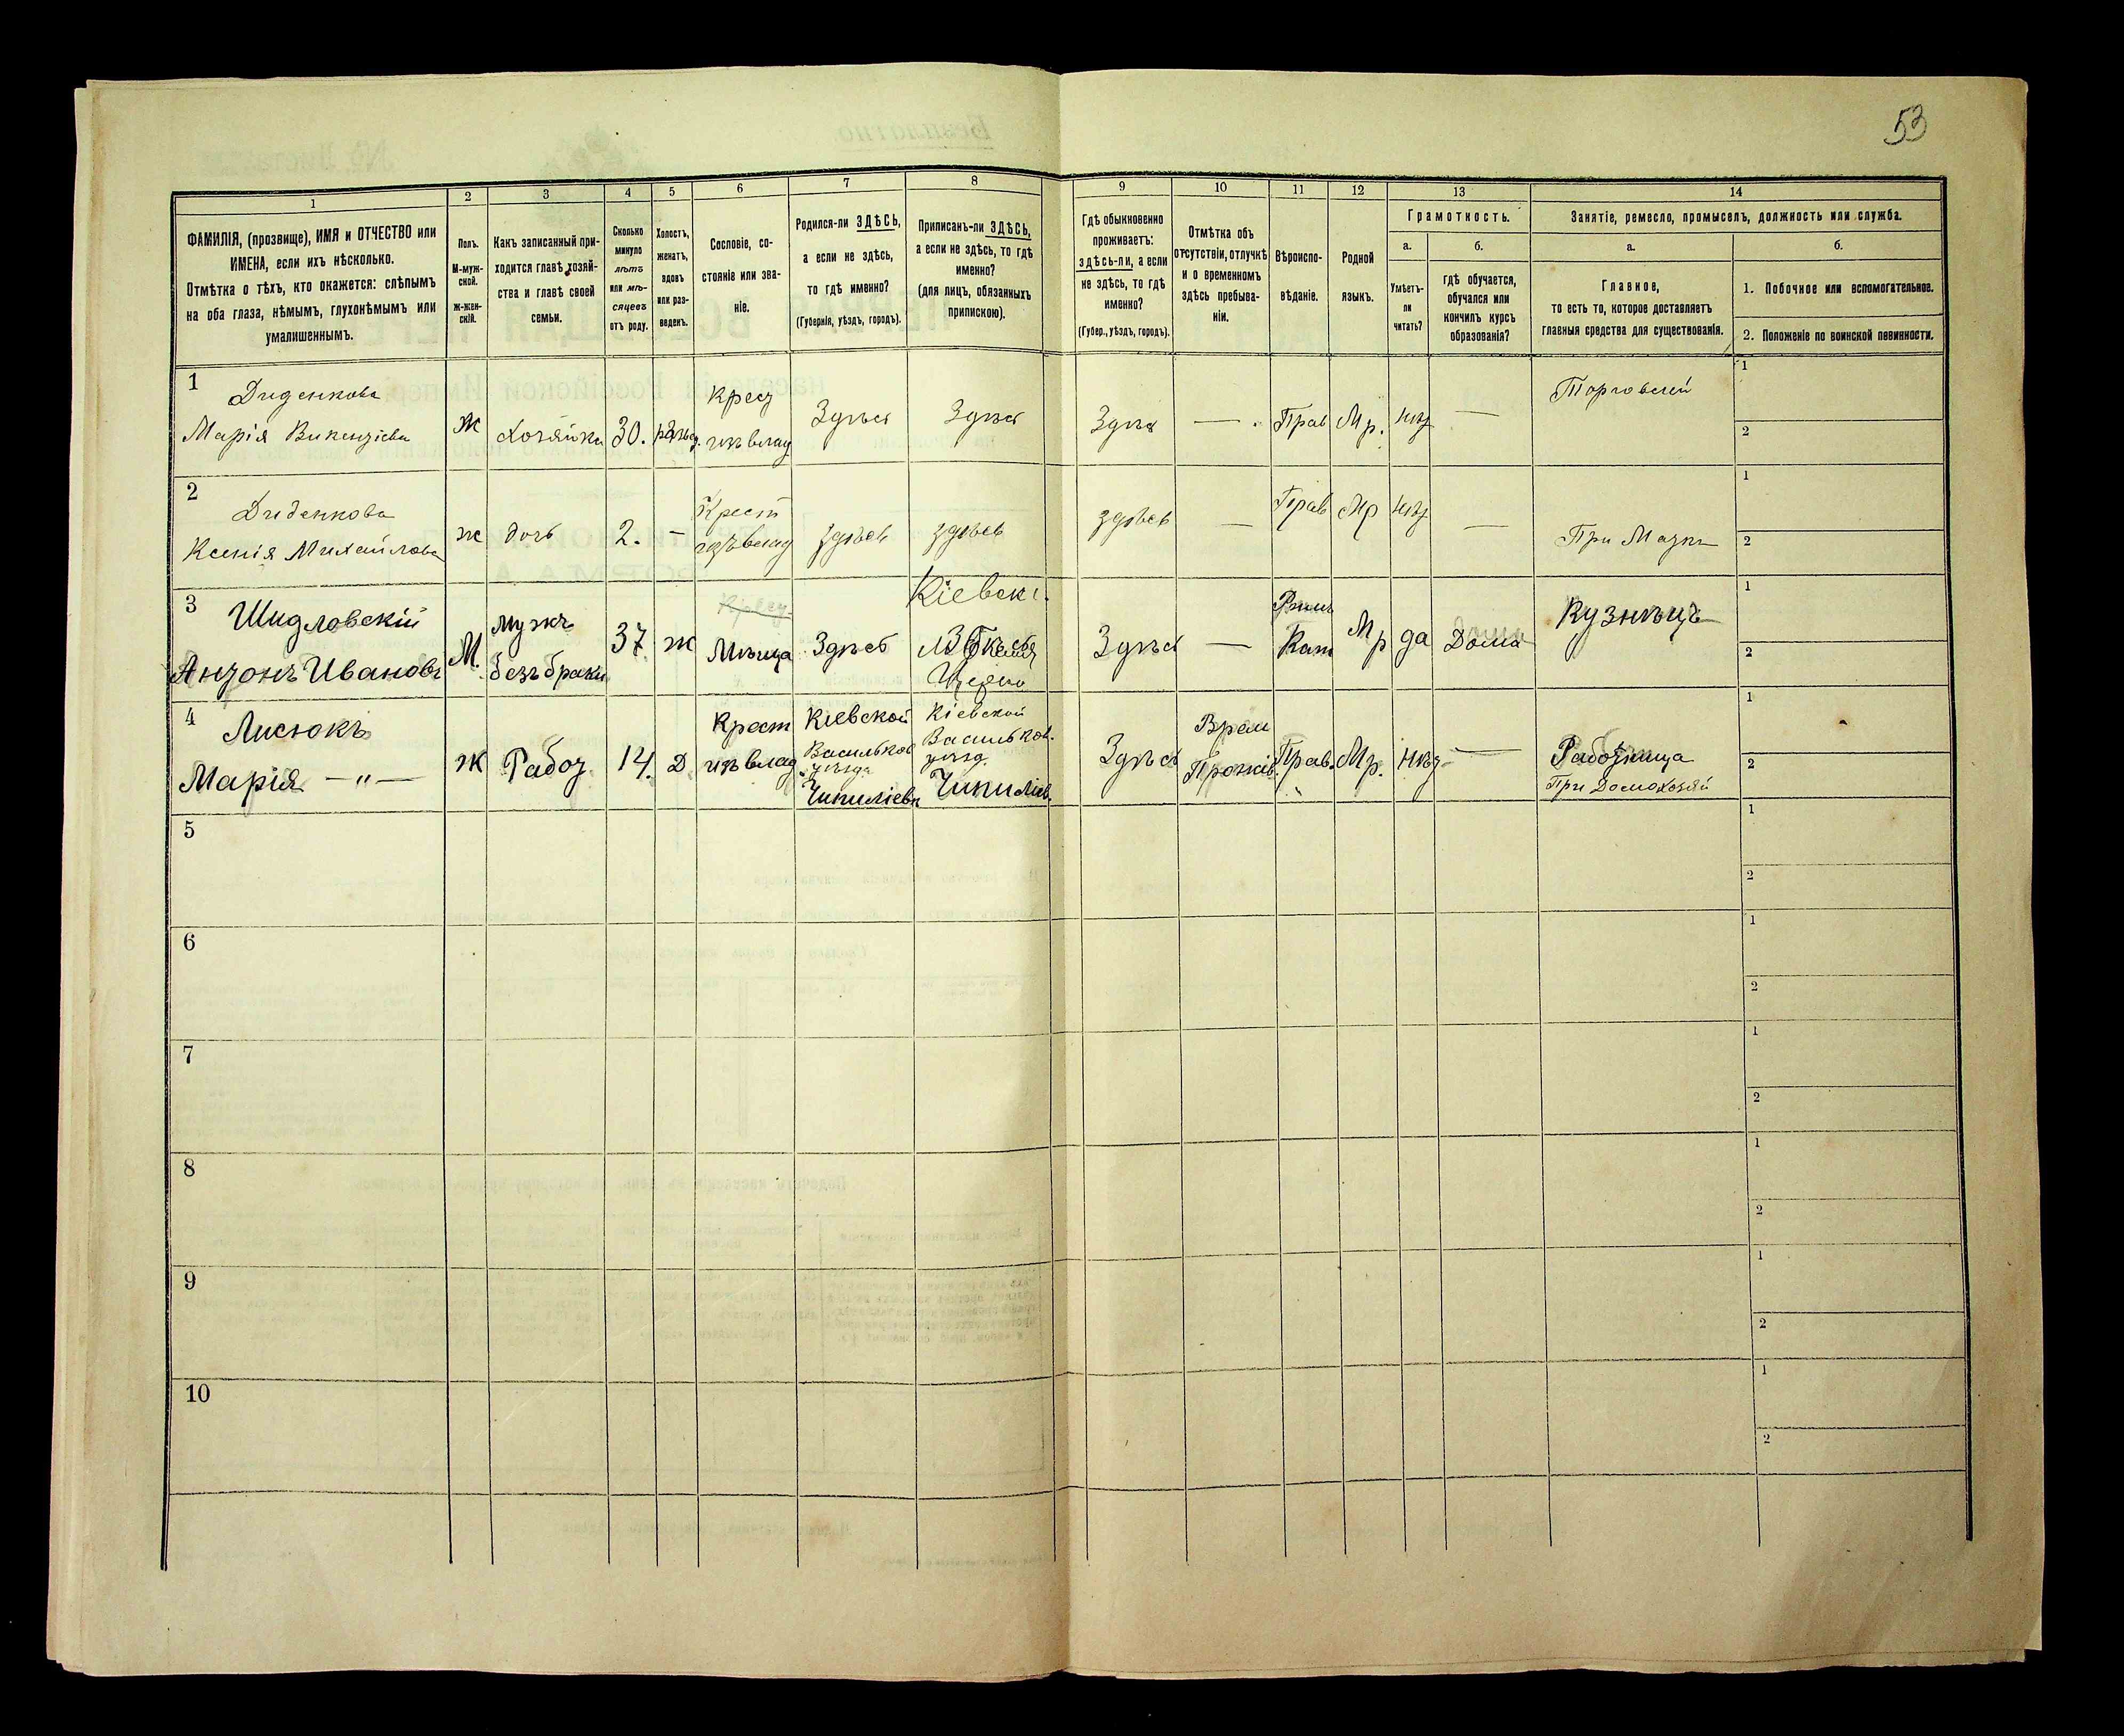 53
1
2
3
4
5
6
7
8
9
10
11
12
13
14
ФАМИЛІЯ, (прозвище), ИМЯ и ОТЧЕСТВО или
ИМЕНА, если ихъ нѣсколько.
Отмѣтка о тѣхъ, кто окажется: слѣпымъ
на оба глаза, нѣмымъ, глухонѣмымъ или
умалишеннымъ.
Полъ.
М-муж-
ской.
ж-жен-
скій.
Какъ записанный при-
ходится главѣ хозяй-
ства и главѣ своей
семьи.
Сколько
минуло
лѣтъ
или мѣ-
сяцевъ
отъ роду.
Холостъ,
женатъ,
вдовъ
или раз-
веденъ.
Сословіе, со-
стояніе или зва-
ніе.
Родился-ли ЗДѢСЬ,
а если не здѣсь,
то гдѣ именно?
(Губернія, уѣздъ, городъ).
Приписанъ-ли ЗДѢСЬ,
а если не здѣсь, то гдѣ
именно?
(для лицъ, обязанныхъ
припискою).
Гдѣ обыкновенно
проживаетъ:
здѣсь-ли, а если
не здѣсь, то гдѣ
именно?
(Губер., уѣздъ, городъ).
Отмѣтка объ
отсутствіи, отлучкѣ
и о временномъ
здѣсь пребыва-
ніи.
Вѣроиспо-
вѣданіе.
Родной
языкъ.
Грамотность.
а.
Умѣетъ-
ли
читать?
б.
гдѣ обучается,
обучался или
кончилъ курсъ
образованія?
Занятіе, ремесло, промыселъ, должность или служба.
а.
Главное,
то есть то, которое доставляетъ
главныя средства для существованія.
б.
1. Побочное или вспомогательное.
2. Положеніе по воинской повинности.
1
Диденкова
Марія Викентіева
Ж
Хозяйка
30.
Крест
изъ влад
Здѣсь
Здѣсь
Здѣсь
—
Прав
Мр.
нѣт
—
Торговлей
1
2
2
Диденкова
Ксенія Михайлова
ж
дочь
2.
—
Крест
изъ влад
здѣсь
здѣсь
здѣсь
—
Прав
Мр
нѣт
—
При
1
2
3
Шидловскій
Антонъ Ивановъ
М.
мужъ
безъ брака
37
ж
Здѣсь
Кіевск.
Здѣсь
—
Рим
Кат
Мр
да
Дома
Кузнѣцъ
1
2
4
Лисюкъ
Марія —"—
Ж
Работ.
14.
Д
Крест
изъ влад
Кіевской
Васильков
уѣзда
Кіевской
Васильков.
уѣзд.
Здѣсь
Врем
Прожив.
Прав.
Мр.
нѣт
—
Работница
При Домохозяй
1
2
5
1
2
6
1
2
7
1
2
8
1
2
9
1
2
10
1
2